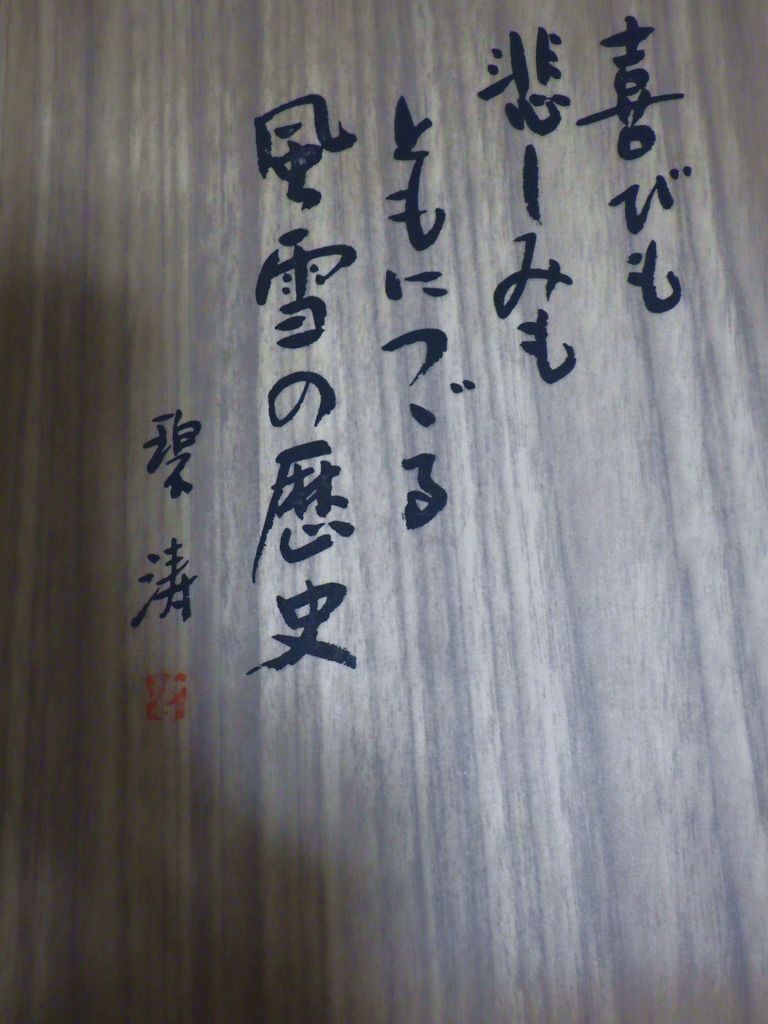 喜びも
悲しみも
ともにつゞる
風雪の歴史
碧涛